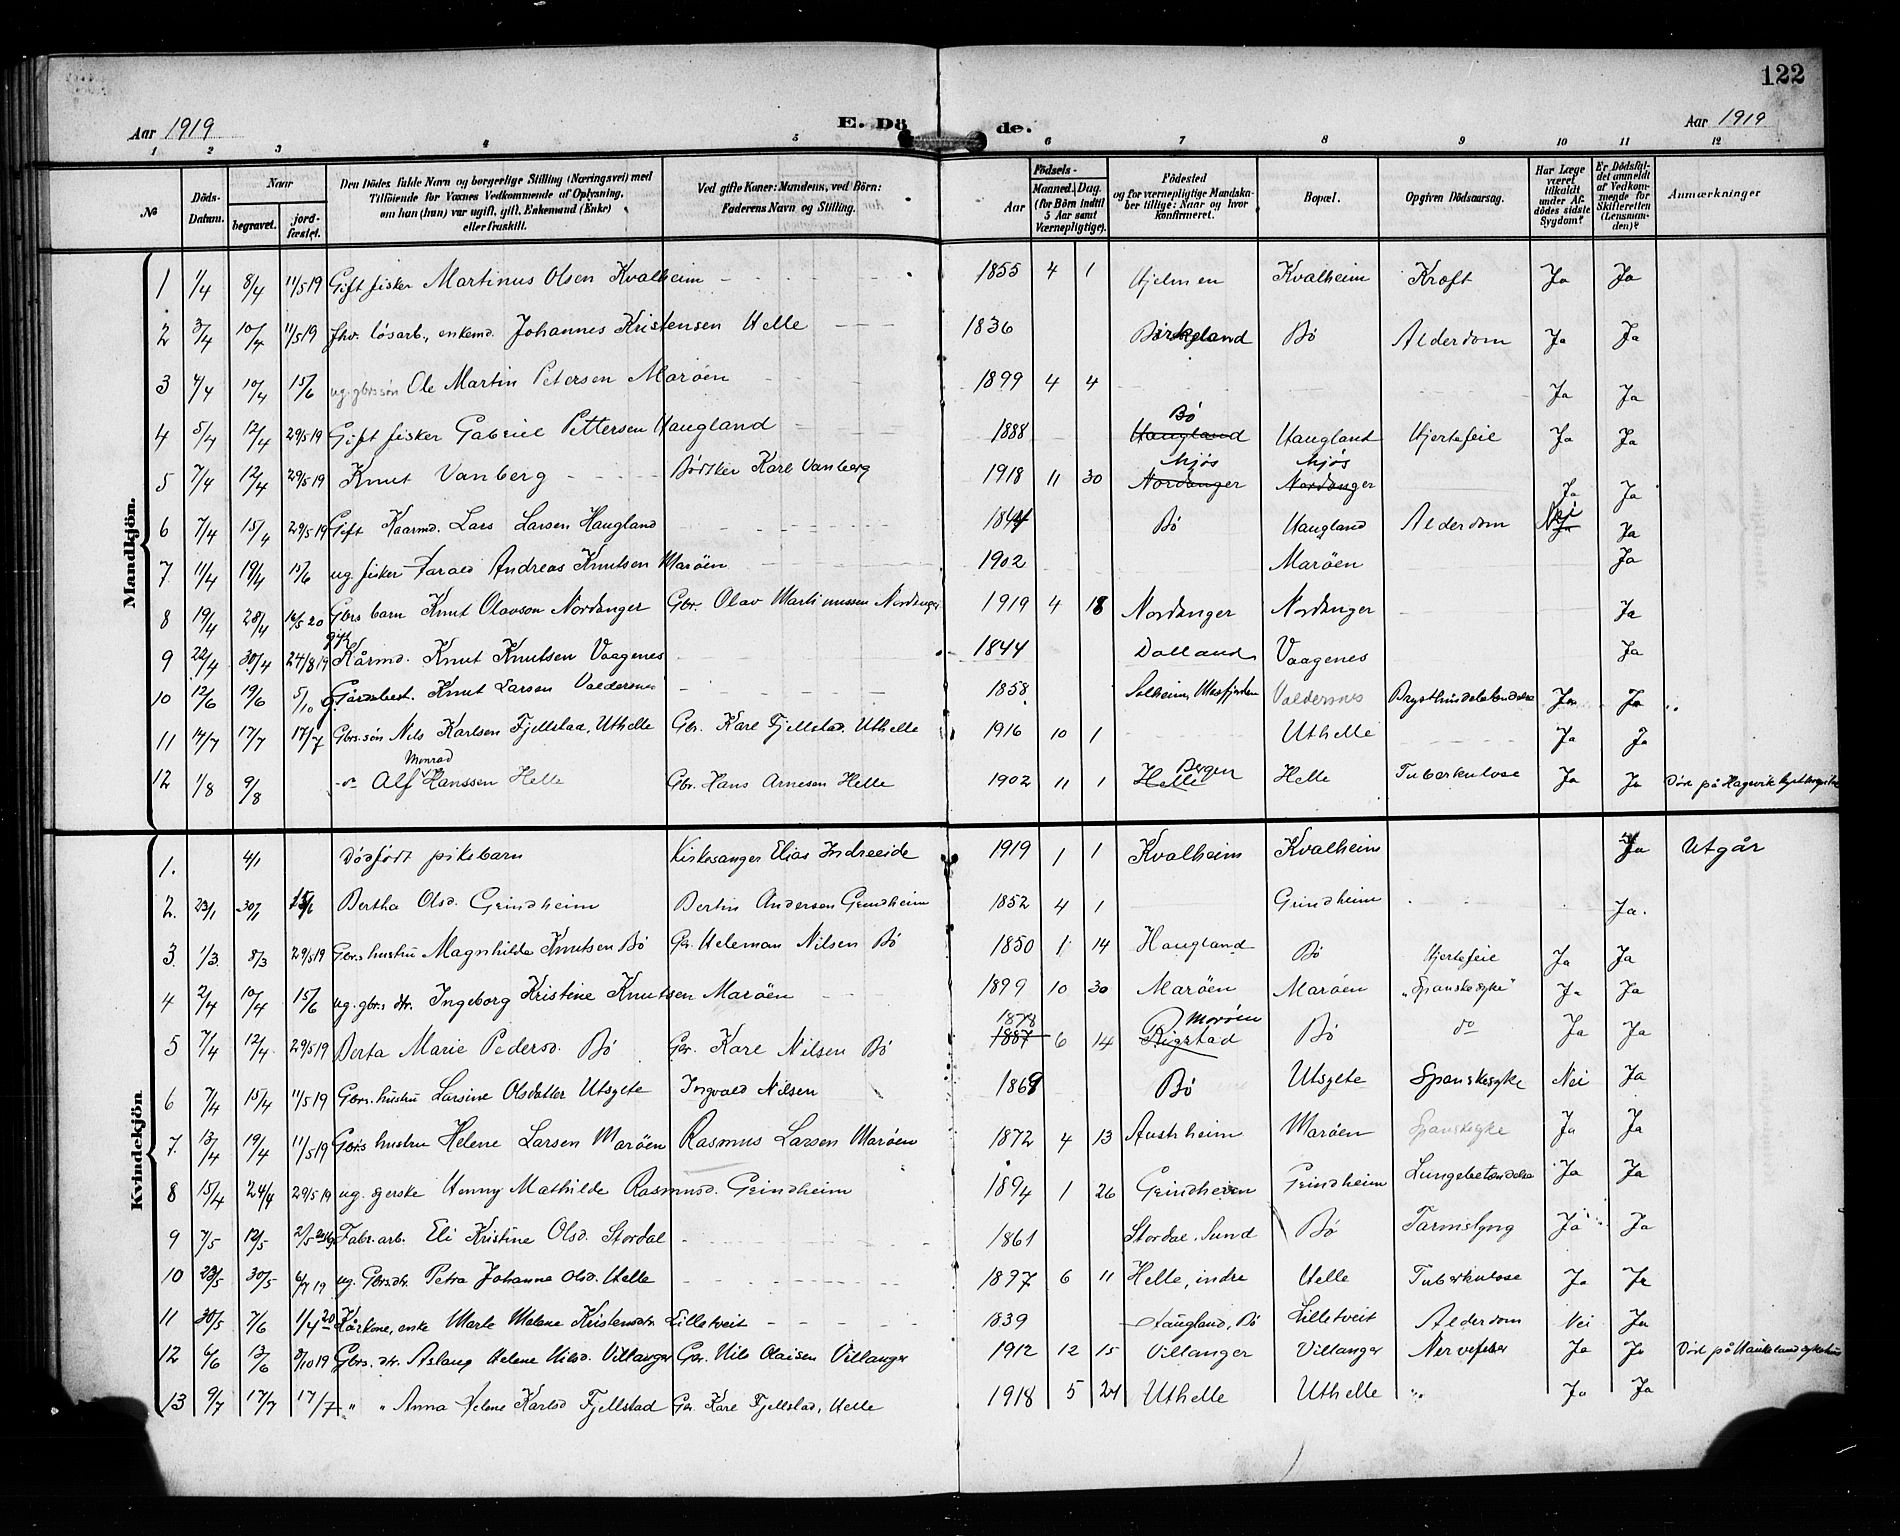 122
Aar 1919 E. Dö de. Aar 1919
1 2 3 4 5 6 7 8 9 10 11 12
№
Döds-Datum.
Naar
begravet.
jord-fæstet.
Den Dödes fulde Navn og borgerlige Stilling (Næringsvei) med
Tilföiende for Voxnes Vedkommende af Oplysning,
om han (hun) var ugift, gift, Enkemand (Enke)
eller fraskilt.
Ved gifte Koner: Mandens, ved Börn:
Faderens Navn og Stilling.
Födsels-
Aar
Maaned. Dag.
(for Börn indtil
5 Aar samt
Værnepligtige).
Födested
og for værnepligtige Mandska-
ber tillige: Naar og hvor
konfirmeret.
Bopæl.
Opgiven Dödsaarsag.
Har Læge
været
tilkaldt
under Af-
dödes sidste
Sygdom?
Er Dödsfal-
det anmeldt
af Vedkom-
mende for
Skifteretten
(Lensman-
den)?
Anmærkninger
Mandkjön.
1 1/4 8/4 11/5 19 Gift fisker Martinus Olsen Kvalheim 1855 4 1 Hjelmen Kvalheim Kræft Ja Ja
2 3/4 10/4 11/5 19 fhv. løsarb., enkem. Johannes Kristensen Helle 1836 Birkeland Bö Alderdom Ja Ja
3 4/4 10/4 15/6 ug. gbrs.søn Ole Martin Petersen Marøen 1899 4 4 Ja Ja
4 5/4 12/4 29/5 19 Gift fisker Gabriel Pettersen Haugland 1888 Bö Haugland Haugland Hjertefeil Ja Ja
5 7/4 12/4 29/5 19 Knut Vanberg Bödtker Karl Vanberg 1918 11 30 Mjøs Nordanger Mjøs Nordanger Ja Ja
6 7/4 15/4 29/5 19 Gift Kaarmd. Lars Larsen Haugland 1844 Bö Haugland Alderdom Nei Ja
7 11/4 19/4 15/6 ug. fisker Harald Andreas Knutsen Marøen 1902 Marøen Ja
8 19/4 28/4 16/5 20 Gbrs barn Knut Olavson Nordanger Gbr. Olav Martinussen Nordanger 1919 4 18 Nordanger Nordanger Ja
9 22/4 30/4 24/8 19 gift Kårmd. Knut Knutsen Vaagenes 1844 Dalland Vaagenes Ja
10 12/6 19/6 5/10 Knut Larsen Valdersnes 1858 Solheim, Masfjorden Valdersnes Brysthindebetændelse Ja Ja
11 14/7 17/7 17/7 Gbrs.søn Nils Karlsen Fjellstad, Uthelle Gbr. Karl Fjellstad, Uthelle 1916 10 1 Uthelle Ja Ja
12 1/8 9/8 -"- Alf Monrad Hanssen Helle Gbr. Hans Arnesen Helle 1902 11 1 Bergen Helle Helle Tuberkulose Ja Ja Död på Hagevik kysthospital
Kvindekjön.
1. 4/1 Dödfödt pikebarn Kirkesanger Elias Indreeide 1919 1 1 Kvalheim Kvalheim Ja Utgår
2. 23/1 30/1 15/6 Bertha Olsd. Grindheim Bertin Andersen Grindheim 1852 4 1 Grindheim Ja.
3. 1/3 8/3 29/5 19 Gbrs hustru Magnhilda Knutsen Bö Gbr. Heleman Nilsen Bö 1850 1 14 Haugland Bö Hjertefeil Ja Ja
4 2/4 10/4 15/6 ug. gbrs. dtr. Ingeborg Kristine Knutsen Marøen 1899 10 30 Marøen Marøen "Spanskesyke" Ja Ja
5 7/4 12/4 29/5 19 Berta Marie Pedersd. Bö Gbr. Karl Nilsen Bö 1878 1887 6 14 Marøen Rigstad Bö do Ja Ja
6 7/4 15/4 11/5 19 Gbrs. hustru Larsine Olsdatter Utsylte Ingvald Nilsen 1869 Bö Utsylte Spanskesyke Nei Ja
7. 13/4 19/4 11/5 19 Gbrs hustru Helene Larsen Marøen Rasmus Larsen Marøen 1872 4 13 Austrheim Marøen Spanskesyke Ja Ja
8 15/4 24/4 29/5 19 ug. syerske Henny Mathilde Rasmusd. Grindheim 1894 1 26 Grindheim Grindheim Lungebetændelse Ja Ja
9 7/5 12/5 Fabr.arb. Eli Kristine Olsd. Stordal 1861 Stordal, Sund Bö Tarmslyng Ja Ja
10 23/5 30/5 6/7 19 ug. Gbrs.dtr. Petra Johanna Olsd. Helle 1897 6 11 Helle, indre Helle Tuberkulose Ja Ja
11 30/5 7/6 1/4 20 Kårkone, enke Marte Malene Kristensdtr. Lilletveit 1839 Haugland, Bö Lilletveit Alderdom Nei Ja
12 6/6 13/6 5/10 19 Gbrs. dtr. Aslaug Helene Nilsd. Villanger Gbr. Nils Olaisen Villanger 1912 12 15 Villanger Villanger Nervefeber Ja Ja Död på Haukeland sykehus
13 9/7 17/7 17/7 " " Anna Helene Karlsd Fjellstad Gbr. Karl Fjellstad, Helle 1918 5 24 Uthelle Uthelle ". Ja Ja